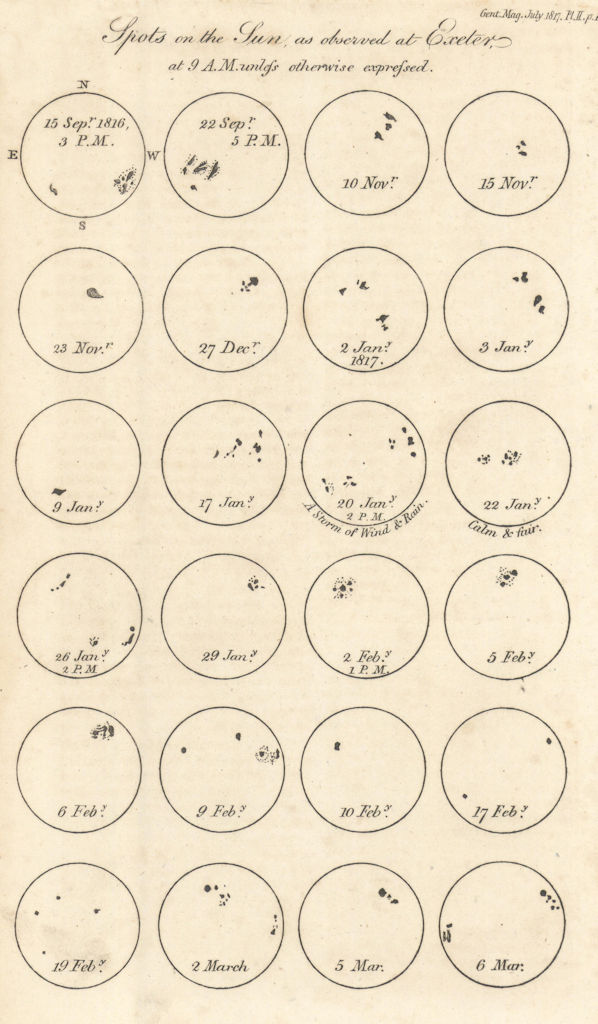 Gent. Mag. July 1817. Pl. II. p.
Spots on the Sun, as observed at Exeter,
at 9 A.M. unleſs otherwise expreſsed.
N
15 Sepʳ. 1816,
3 P.M.
E
W
S
22 Sepʳ.
5 P.M.
10 Novʳ.
15 Novʳ.
23 Nov.ʳ
27 Decʳ.
2 Jan.ʸ
1817.
3 Jan.ʸ
9 Jan.ʸ
17 Jan.ʸ
20 Jan.ʸ
2 P.M.
A Storm of Wind & Rain.
22 Jan.ʸ
Calm & fair.
26 Jan.ʸ
2 P.M
29 Jan.ʸ
2 Feb.ʸ
1 P.M.
5 Feb.ʸ
6 Feb.ʸ
9 Feb.ʸ
10 Feb.ʸ
17 Feb.ʸ
19 Feb.ʸ
2 March
5 Mar.
6 Mar.